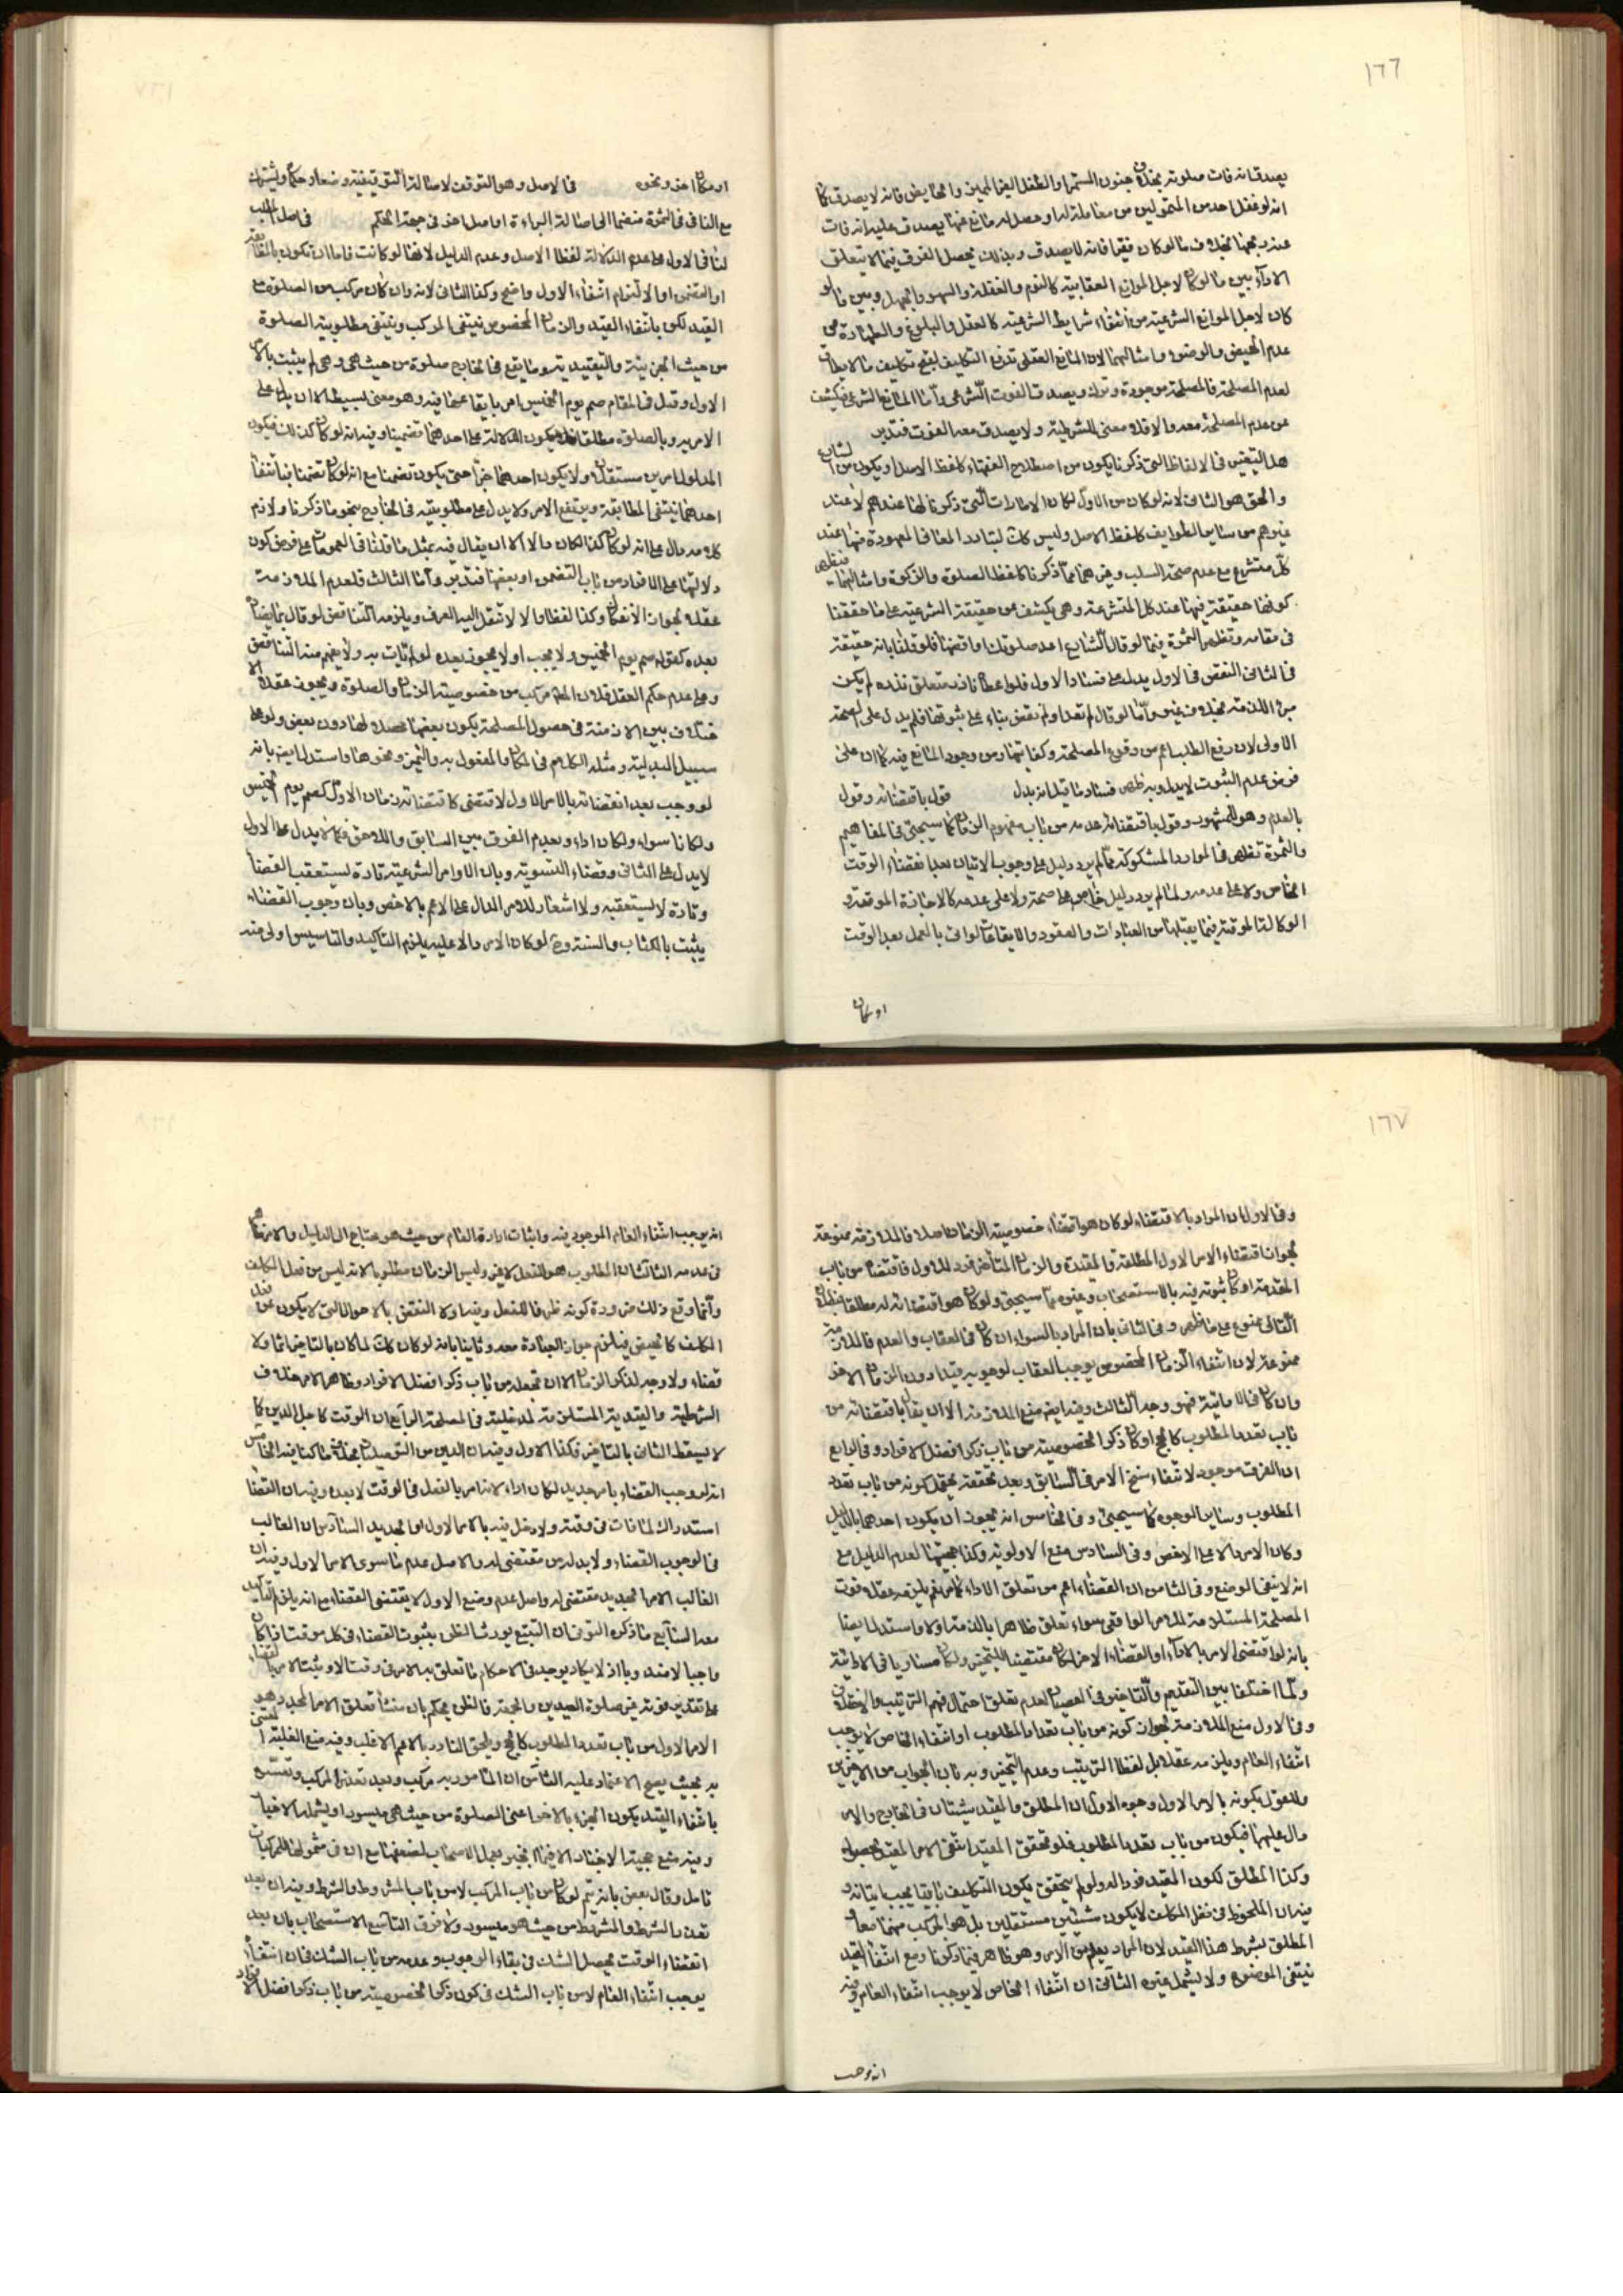 ١٦٦
يصدق انه فات صلوته بخلاف جنون المستمر والطفل الغير المميز والحايض فانه لا يصدق كما
انه لو غفل احد من المتمولين من معاملة له او حصل له مانع عنها يصدق عليه انه فات
عنه ربحها بخلاف ما لو كان فقيرا فانه لا يصدق وبذلك يحصل الفرق فيما لا يتعلق
الاداء بين ما لو كان لاجل الموانع العقابية كالنوم والغفلة والسهو والجهل وبين ما لو
كان لاجل الموانع الشرعية من انتفاء شرايط الشرعية كالعقل والبلوغ والطهارة من
عدم الحيض والوضوء وامثالهما لان المانع العقلي تدفع التكليف لقبح تكليف ما لا يطاق
لعدم المصلحة فالمصلحة موجودة وترك ويصدق الفوت الشرعي واما المانع الشرعي فيكشف
عن عدم المصلحة معه والا فلا معنى للشرطية ولا يصدق معه الفوت فتدبر
هل التعيين في الالفاظ التي ذكرنا يكون من اصطلاح الفقهاء كلفظ الاصل او يكون من الشارع
والحق هو الثاني لانه لو كان من الاول لكان الامارات التي ذكرنا لها عندهم لا عند
غيرهم من ساير الطوايف كلفظ الاصل وليس كك لتبادر المعاني المعهودة منها عند
كل متشرع مع عدم صحة السلب وغيرهما مما ذكرنا كلفظ الصلوة والزكوة وامثالهما فيظهر
كونها حقيقة فيها عند كل المتشرعة وهي يكشف عن حقيقة الشرعية على ما حققنا
في مقامه وتظهر الثمرة فيما لو قال الشارع اعد صلوتك او اقضها فلو قلنا بانه حقيقة
في الثاني النقض في الاول يدل على فساد الاول فلو اعطانا نذر متعلق نذره لم يكن
مبرئا لذمته بخلاف غيره واما لو قال لم تعد او لم تقض بناء على ثبوتها فلم يدل على الصحة
الاولى لان رفع الطلب اعم من وقوع المصلحة وكفايتها ومن وجود المانع فيه كما ان على
فرض عدم الثبوت لا يدل وبه ظهر فساد ما قيل انه يدل قول باقتضائه وقول
بالعدم وهو المشهور وقول باقتضائه عدمه من باب مفهوم الزمان كما سيجئ في المفاهيم
والثمرة تظهر في الموارد المشكوكة مما لم يرد دليل على وجوب الاتيان بعد انقضاء الوقت
الخاص ولا على عدمه ولما لم يرد دليل خاص على صحة ولا على عدمه كالاجازة الموقتة و
الوكالة الموقتة فيما يقبلها من العبادات والعقود والايقاعات لو اتى بالعمل بعد الوقت
او مكان
او مكان اخر ونحوه في الاصل وهو التوقف لاصالة التوقيفية وضعا وحكما ويشترك
مع النافي في الثمرة منضما الى اصالة البراءة او اصل اخر في جهة الحكم في اصل المطلب
لنا في الاول على عدم الدلالة لفظا الاصل وعدم الدليل لانها لو كانت فاما ان تكون بالمطابقة
او التضمن او الالتزام انتفاء الاول واضح وكذا الثاني لانه وان كان مركب من الصلوة مع
القيد لكن بانتفاء القيد والزمان المخصوص ينتفي المركب وينتفي مطلوبية الصلوة
من حيث الجزئية والتقييدية وما يقع في الخارج صلوة من حيث هي وهي لم يثبت بالامر
الاول وقيل في المقام صم يوم الخميس امر بايقاعها فيه وهو معنى بسيط الا ان يدل على
الامر به وبالصلوة مطلقا فيكون الدلالة على احدهما تضمنيا وفيه انه لو كان كذلك فيكون
المدلول امرين مستقلين ولا يكون احدهما جزء حتى يكون تضمنا مع انه لو كان تضمنا بانتفاء
احدهما ينتفي المطابقة ويرتفع الامر ولا يدل على مطلوبيته في الخارج بنحو ما ذكرنا ولازم
كلامه دال على انه لو كان كذا لكان دالا الا ان يقال فيه بمثل ما قلنا في العمومات على فرض كون
دلالتها على الافراد من باب التضمن او بعضها فتدبر واما الثالث فلعدم الملازمة
عقلا لجواز الانفكاك وكذا لفظا والا لانتقل اليه العرف ويلزمه التناقض لو قال بما يضاد
بعده كقوله صم يوم الخميس ولا يجب او لا يجوز بعده لو لم تات به ولا يفهم منه التناقض
وعلى عدم حكم العقل فلان المطلوب مركب من خصوصية الزمان والصلوة ويجوز عقلا الا
ختلاف بين الازمنة في حصول المصلحة يكون بعضها محصلا لها دون بعض ولو على
سبيل البدلية ومثله الكلام في المكان والمفعول به والتميز ونحوها واستدل ايضا بانه
لو وجب بعد انقضائه بالامر الاول لاقتضى كاقتضائه زمان الاول كصم يوم الخميس
ولكانا سواء ولكان اداء وبعدم الفرق بين السابق واللاحق فكما لا يدل على الاول
لا يدل على الثاني وقضاء التسوية وبان الاوامر الشرعية تارة ليستعقب القضاء
وتارة لا يستعقبه ولا اشعار للامر الدال على الاعم بالاخص وبان وجوب القضاء
يثبت بالكتاب والسنة وح لو كان الامر دالا عليه يلزم التاكيد والتاسيس اولى منه
١٦٧
وفي الاول ان المراد بالاقتضاء لو كان هو اقتضاء خصوصية الزمان اصلا فالملازمة ممنوعة
لجواز اقتضاء الامر الاول المطلقة والمقيدة والزمان المتأخر فرد للاول فاقتضاء من باب
المقدمة او كان ثبوته فيه بالاستصحاب وغيره مما سيجئ ولو كان هو اقتضائه له مطلقا فبطلان
التالي ممنوع على ما ظهر وفي الثاني بان المراد بالسواء ان كان في العقاب والعدم فالملازمة
ممنوعة لان انتفاء الزمان المخصوص يوجب العقاب لوجوبه فيه دون الزمان الاخر
وان كان في الاداتية فهو وجه الثالث وفيه ايضا منع الملازمة الا ان يقال باقتضائه من
باب تعدد المطلوب كالحج او كان ذكر الخصوصية من باب ذكر افضل الافراد وفي الرابع
ان الفرق موجود لانتفاء سنخ الامر في السابق وبعد تحققه يحتمل كونه من باب تعدد
المطلوب وساير الوجوه كما سيجئ وفي الخامس انه يجوز ان يكون احدهما بالدليل
وكان الامر دالا على الاخص وفي السادس منع الاولوية وكذا حجيتها لعدم الدليل مع
انه لا ينفي الوضع وفي الثامن ان القضاء اعم من تعلق الاداء كما مر نعم يلزمه عقلا فوت
المصلحة المستلزمة للامر الواقعي سواء تعلق ظاهرا بالذمة او لا واستدل ايضا
بانه لو اقتضى الامر بالاداء او القضاء الاخر لكان مقتضيا للتخيير ولكانا مساويا في الاداتية
ولما اختلفا بين التقديم والتاخير في العصيان لعدم تعلق احتمال فهم الترتيب والاختلاف
وفي الاول منع الملازمة لجواز كونه من باب تعدد المطلوب او انتفاء الخاص لا يوجب
انتفاء العام ويلزمه عقلا بل لفظا الترتيب وعدم التخيير وبه بان الجواب من الاخيرين
وللقول بكونه بالامر الاول وجوه الاول ان المطلق والمقيد شيئان في الخارج والامر
دال عليهما فيكون من باب تعدد المطلوب فلو تحقق المقيد انتفى الامر المقيد لحصوله
وكذا المطلق لكون المقيد فردا له ولو لم يتحقق يكون التكليف باقيا يجب اتيانه و
فيه ان الملحوظ في نظر المكلف لا يكون شيئين مستقلين بل هو المركب منهما معا و
المطلق بشرط هذا القيد لان المراد يعلم من الامر وهو ظاهر فيما ذكرنا ومع انتفاء القيد
ينتفي الموضوع ولا يشمل غيره الثاني ان انتفاء الخاص لا يوجب انتفاء العام وفيه
انه يوجب
انه يوجب انتفاء العام الموجود فيه واثبات ارادة العام من حيث هو محتاج الى الدليل والامر كما
في عدمه الثالث ان المطلوب هو الفعل لا غير وليس الزمان مطلوبا لانه ليس من فعل المكلف
وانما وقع ذلك ضرورة كونه ظرفا للفعل وفيه اولا النقض بالاحوال التي لا يكون من فعل
المكلف كالحيض فيلزم جواز العبادة معه وثانيا بانه لو كان كك لما كان بالتاخير اثما ولا
قضاء ولا وجه لذكر الزمان الا ان تجعله من باب ذكر افضل الافراد وظاهر الامر خلاف
الشرطية والقيدية المستلزمة لمدخلية في المصلحة الرابع ان الوقت كاجل الدين كما
لا يسقط الثاني بالتاخير فكذا الاول وفيه ان الدين من التوصليات بخلاف ما كنا فيه الخامس
انه لو وجب القضاء بامر جديد لكان اداء لانه امر بالفعل في الوقت لا بعده وفيه ان القضاء
استدراك لما فات في وقته ولا دخل فيه بالامر الاول او الجديد السادس ان الغالب
في الوجوب القضاء ولا بد له من مقتضى له والاصل عدم ما سوى الامر الاول وفيه ان
الغالب الامر الجديد مقتضى له واصل عدم وضع الاول لا يقتضى القضاء مع انه يلزم التاكيد
معه السابع ما ذكره التوني ان التتبع يورث الظن بثبوت القضاء في كل موقت اذا كان
واجبا لا مندوبا اذ لا يكاد يوجد في الاحكام ما تعلق به الامر في وقت الا وثبت الامر بالقضاء
على تقدير فوته غير صلوة العيدين والجمعة فالظن يحكم بان منشأ تعلق الامر الجديد هو
الامر الاول من باب تعدد المطلوب كالحج ويلحق النادر بالاعم الاغلب وفيه منع الغلبة المعتنى
به بحيث يصح الاعتماد عليه الثامن ان المأمور به مركب وبعد تعذر المركب وتعسره
بانتفاء القيد يكون الجزء بالاخر اعنى الصلوة من حيث هي ميسور او يشمله الاخبار
وفيه منع حجية الاخبار الا فيما انجبر بعمل الاصحاب لضعفها مع ان في شمولها للمركبات
تامل وقال بعض بانه يتم لو كان من باب المركب لا من باب المشروط والشرط وفيه ان بعد
تعذر الشرط والمشروط من حيث هو ميسور ولا فرق التاسع الاستصحاب بان بعد
انقضاء الوقت يحصل الشك في بقاء الوجوب وعدمه من باب الشك في ان انتفائه
يوجب انتفاء العام لا من باب الشك في كون ذكر الخصوصية من باب ذكر افضل الافراد